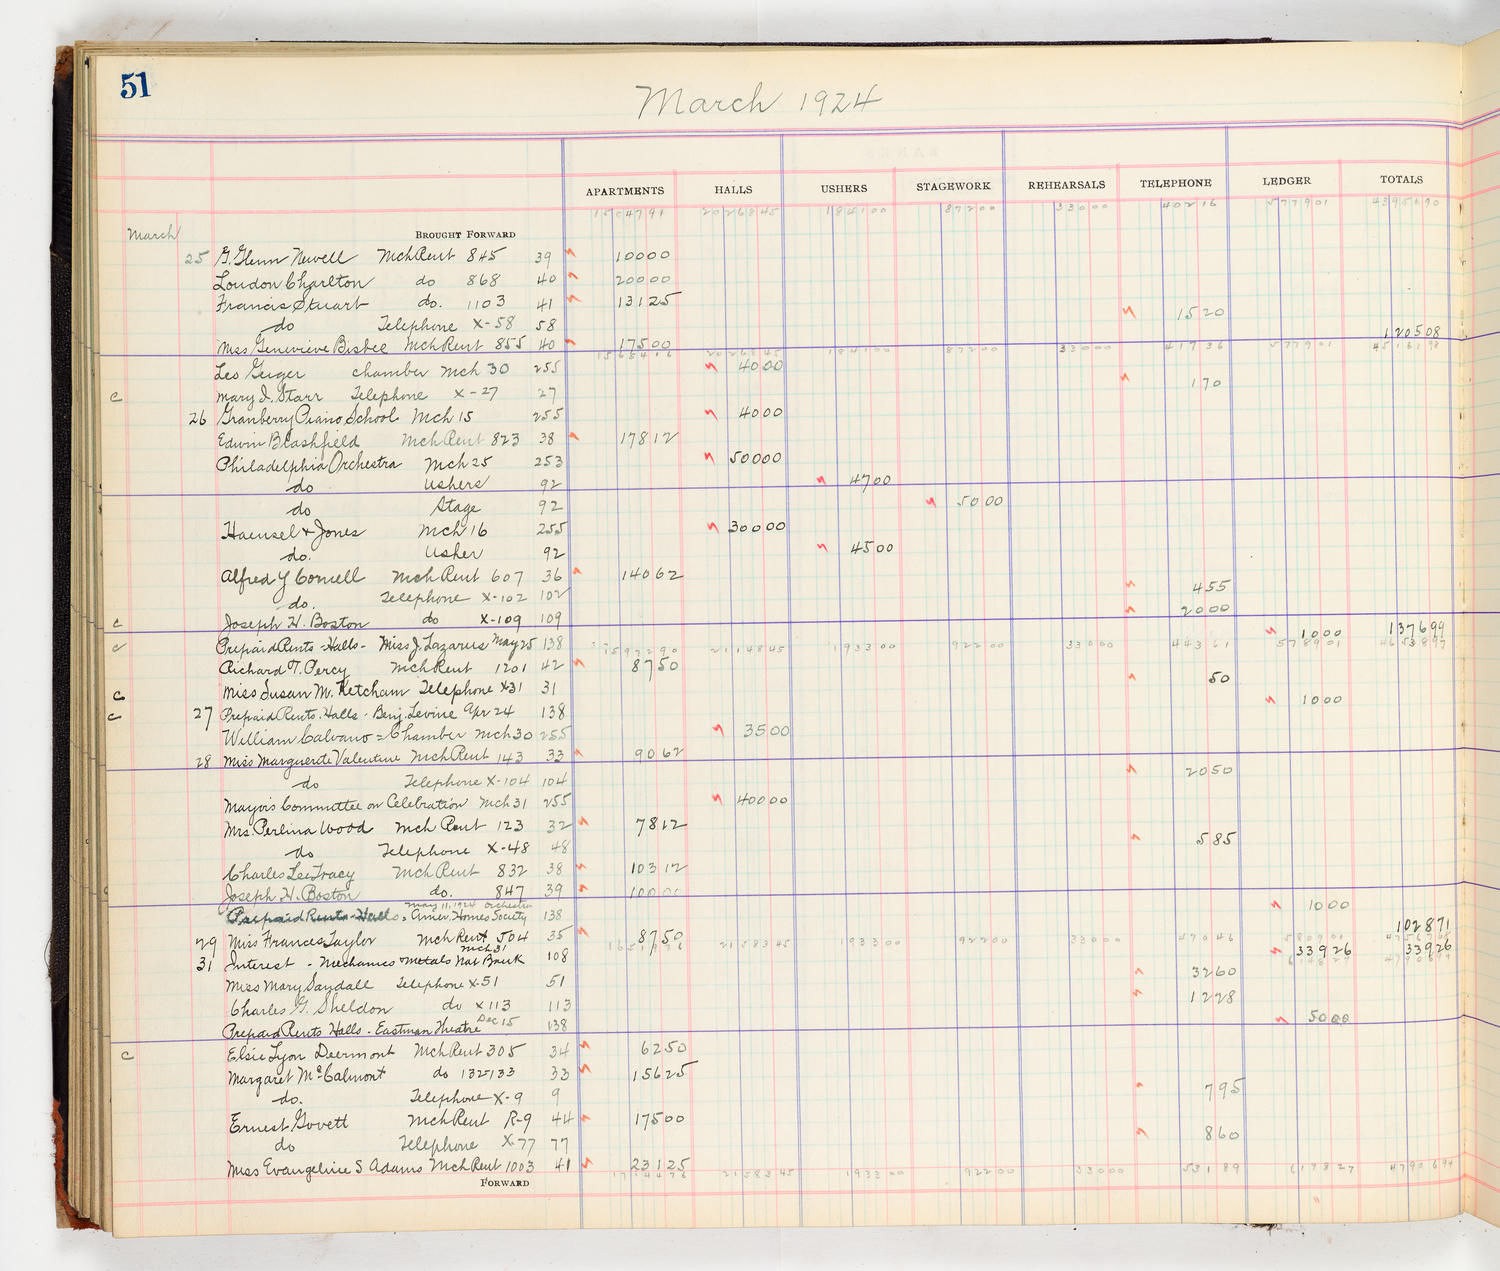 51
March 1924
APARTMENTS HALLS USHERS STAGEWORK REHEARSALS TELEPHONE LEDGER TOTALS
1504791 2026845 184100 87200 33000 40216 577901 4395690
March BROUGHT FORWARD
25 G. Glenn Newell Mch Rent 845 39 10000
Loudon Charlton do 868 40 20000
Francis Stuart do. 1103 41 13125
do Telephone X-58 58 1520
Miss Genevieve Bisbee Mch Rent 855 40 17500 120508
1565416 2026845 184100 87200 33000 41736 577901 4516198
Leo Geiger chamber Mch 30 255 4000
c Mary I. Starr Telephone X-27 27 170
26 Granberry Piano School Mch 15 255 4000
Edwin Blashfield Mch Rent 823 38 17812
Philadelphia Orchestra Mch 25 253 50000
do Ushers 92 4700
do Stage 92 5000
Haensel & Jones Mch 16 255 30000
do. Usher 92 4500
Alfred Y Cornell Mch Rent 607 36 14062
do. Telephone X-102 102 455
c Joseph H. Boston do X-109 109 2000
c Prepaid Rents-Halls- Miss J. Lazarus May 25 138 1000 137699
1597290 2114845 193300 92200 33000 44361 578901 4653897
Richard T. Percy Mch Rent 1201 42 8750
c Miss Susan M. Ketcham Telephone X31 31 50
c 27 Prepaid Rents. Halls - Benj. Levine Apr 24 138 1000
William Calvano = Chamber Mch 30 255 3500
28 Miss Marguerite Valentine Mch Rent 143 33 9062
do Telephone X-104 104 2050
Mayor's Committee on Celebration Mch 31 255 40000
Mrs. Perlina Wood Mch Rent 123 32 7812
do Telephone X-48 48 585
Charles Lee Tracy Mch Rent 832 38 10312
Joseph H. Boston do. 847 39 10000
May 11, 1924 Orchestra
Prepaid Rents-Halls = Amer. Homes Society 138 1000
29 Miss Frances Taylor Mch Rent 504 35 8750 102871
2158345 193300 92200 33000 47046 580901
Mch 31
31 Interest - Mechanics & Metals Nat Bank 108 33926 33926
Miss Mary Sandall Telephone X-51 51 3260
Charles G. Sheldon do X 113 113 1228
Prepaid Rents Halls - Eastman Theatre Dec 15 138 5000
c Elsie Lyon Deermont Mch Rent 305 34 6250
Margaret McCalmont do 132-133 33 15625
do. Telephone X-9 9 795
Ernest Govett Mch Rent R-9 44 17500
do Telephone X-77 77 860
Miss Evangeline S Adams Mch Rent 1003 41 23125
2158345 193300 92200 33000 53189 617827 4790694
FORWARD